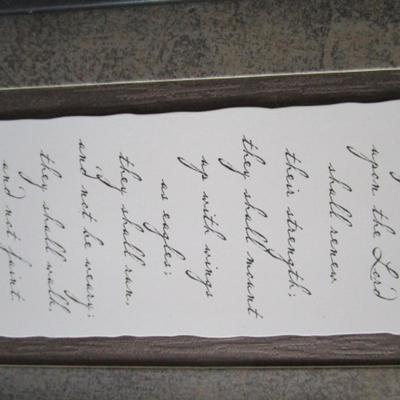 upon the Lord
shall renew
their strength;
they shall mount
up with wings
as eagles;
they shall run,
and not be weary;
they shall walk,
and not faint.